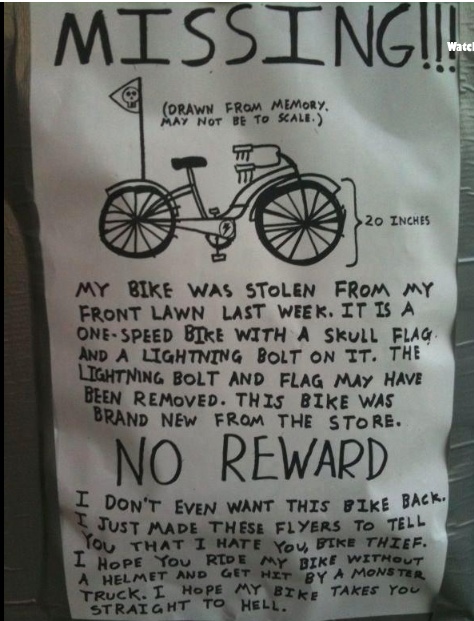 MISSING!!!
Watch
(DRAWN FROM MEMORY.
MAY NOT BE TO SCALE.)
20 INCHES
MY BIKE WAS STOLEN FROM MY
FRONT LAWN LAST WEEK. IT IS A
ONE-SPEED BIKE WITH A SKULL FLAG
AND A LIGHTNING BOLT ON IT. THE
LIGHTNING BOLT AND FLAG MAY HAVE
BEEN REMOVED. THIS BIKE WAS
BRAND NEW FROM THE STORE.
NO REWARD
I DON'T EVEN WANT THIS BIKE BACK.
I JUST MADE THESE FLYERS TO TELL
YOU THAT I HATE YOU, BIKE THIEF.
I HOPE YOU RIDE MY BIKE WITHOUT
A HELMET AND GET HIT BY A MONSTER
TRUCK. I HOPE MY BIKE TAKES YOU
STRAIGHT TO HELL.